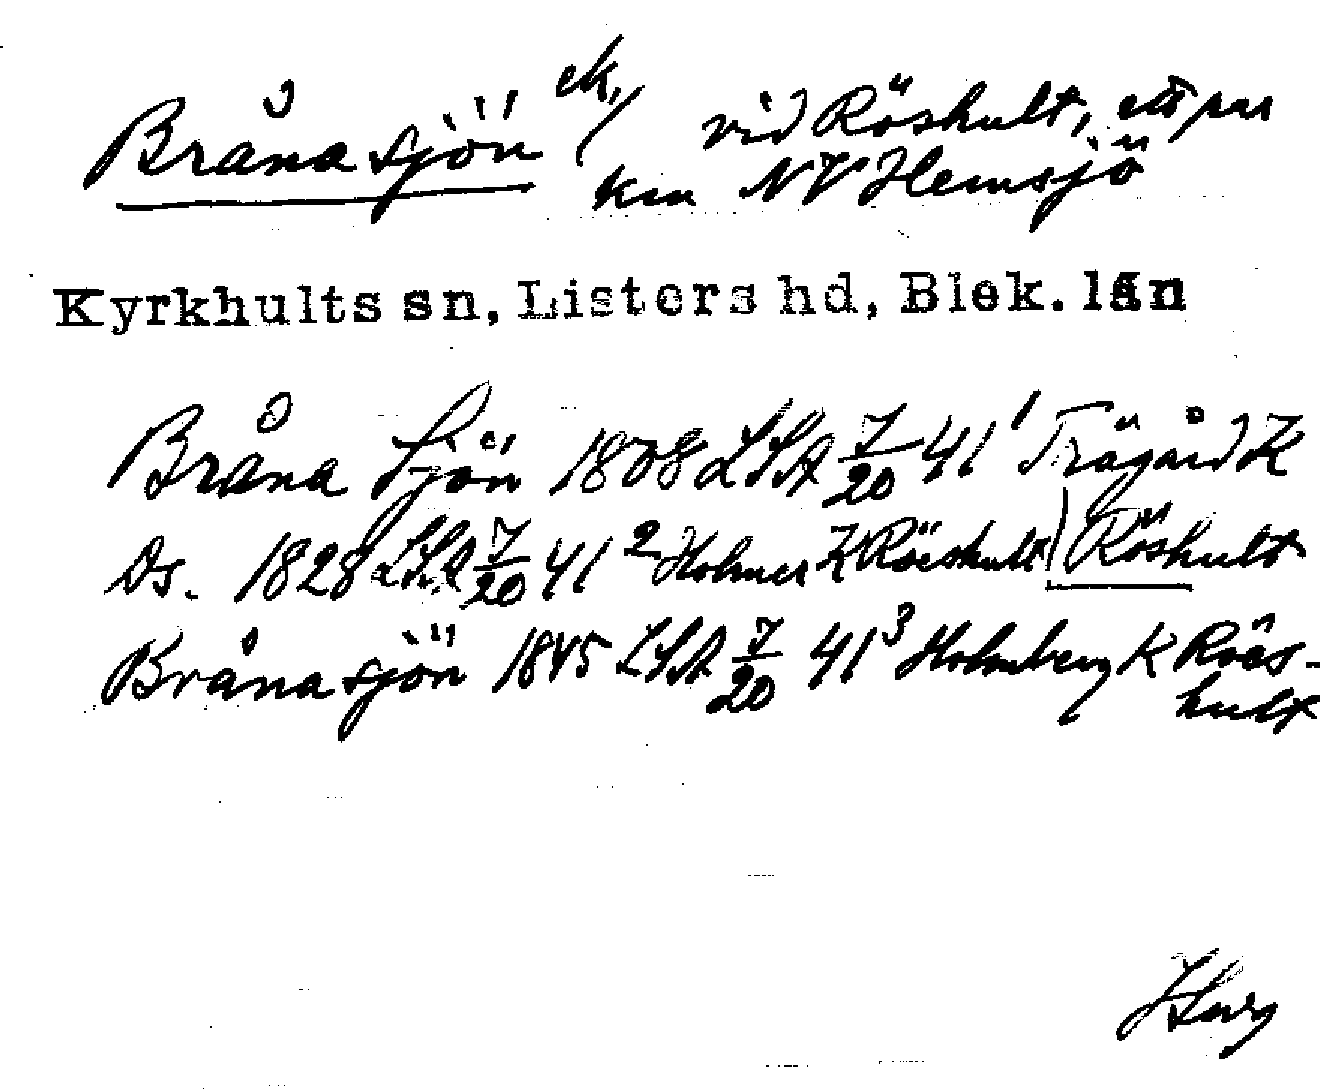 Brånasjön ek. / vid Röshult, ett par
km NV Hemsjö
Kyrkhults sn, Listers hd, Blek. län
Bråna Sjön 1808 LSA 7/20 41 1 Trägård K
Ds. 1828 LSA 7/20 41 2 Holmer K Röeshult) Röshult
Brånasjön 1845 LSA 7/20 41 3 Holmberg K Röes-
hult